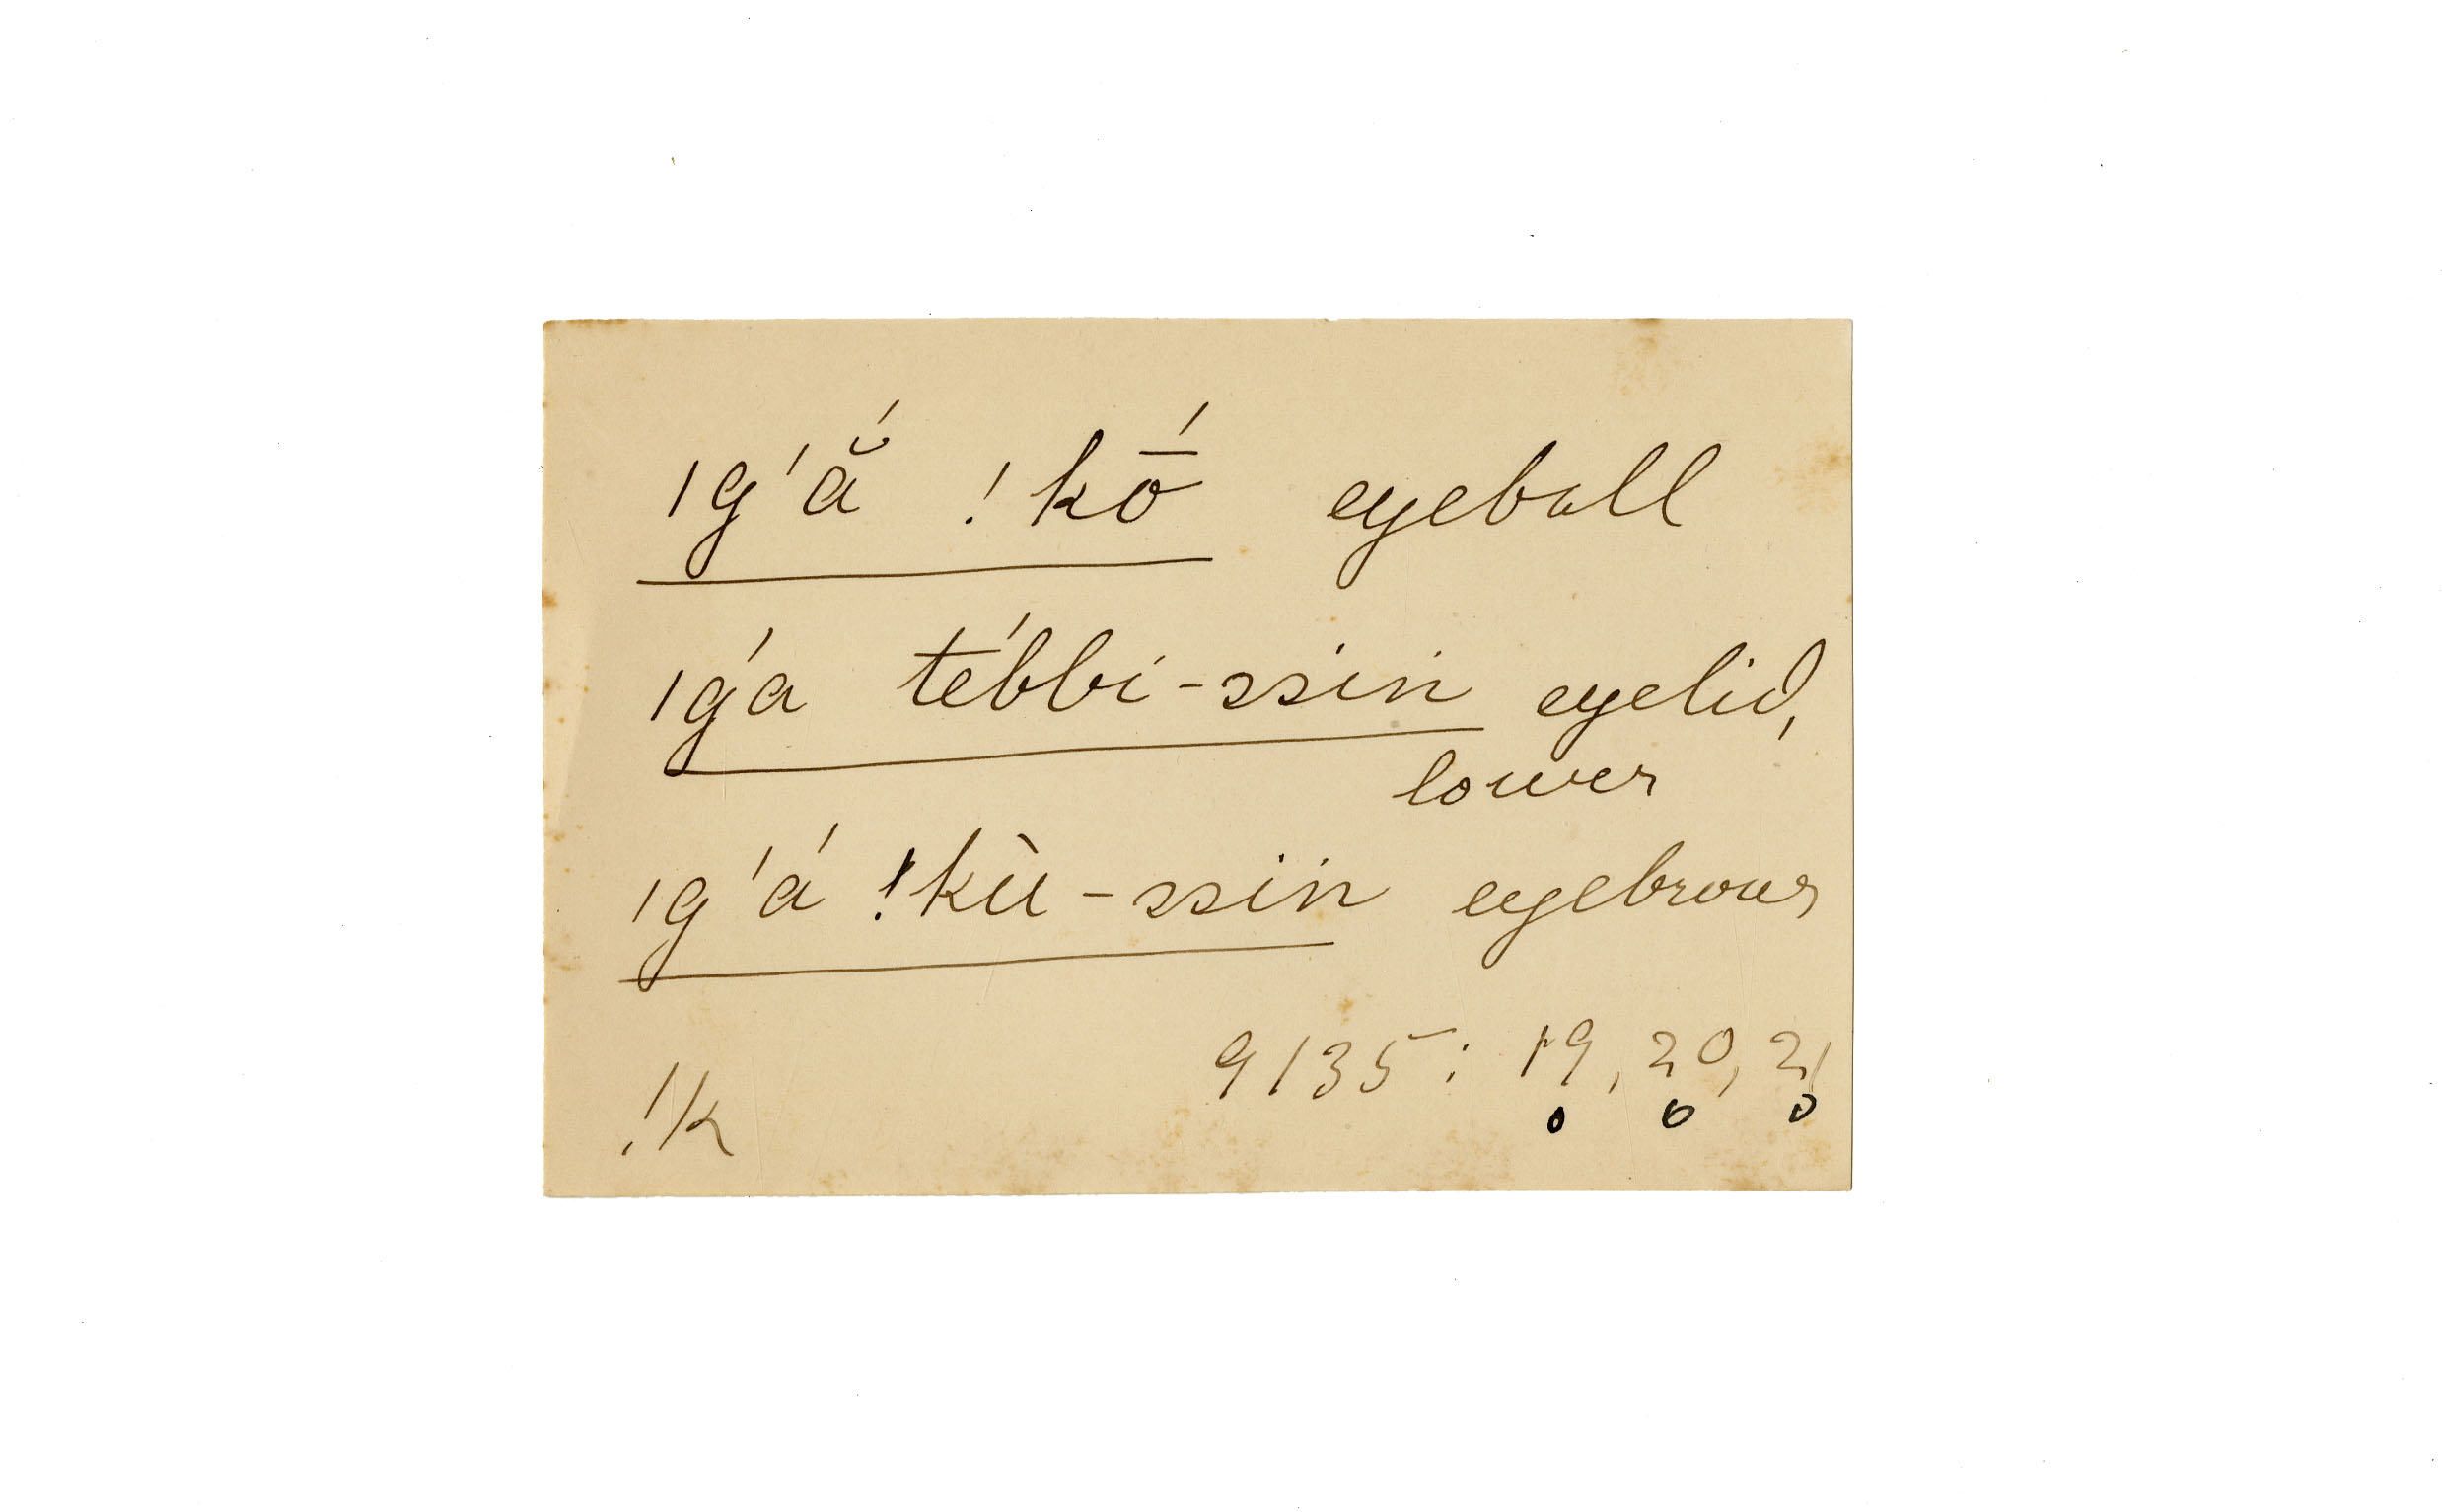 ıg'ắ !kṓ eyeball
ıg'a tébbi-ssin eyelid,
lower
ıg'á !kù-ssin eyebrows
9135: 19, 20, 21
!k